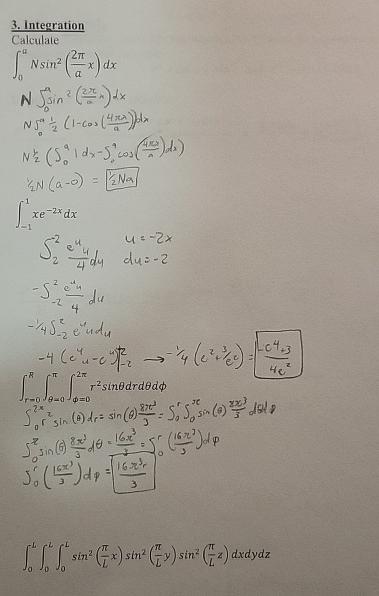 3. Integration
Calculate
∫₀ᵃ N sin² (2π/a x) dx
N ∫₀ᵃ sin² (2π/a x) dx
N ∫₀ᵃ ½ (1-cos(4πx/a)) dx
N½ (∫₀ᵃ 1 dx - ∫₀ᵃ cos(4πx/a) dx)
½N (a-0) = ½Na
∫₋₁¹ xe⁻²ˣ dx
∫₂⁻² eᵘu/4 du u = -2x
du = -2
-∫₋₂² eᵘu/4 du
-¼ ∫₋₂² eᵘu du
-4 (eᵘu - eᵘ)|₋₂² → -¼ (e² + 3/e²) = -e⁴+3/4e²
∫ᵣ₌₀ᴿ ∫θ₌₀^π ∫ϕ₌₀^2π r² sinθ dr dθ dϕ
∫₀^2π r² sin(θ) dr = sin(θ) 8π³/3 = ∫₀ʳ ∫₀^π sin(θ) 8π³/3 dθ dφ
∫₀^π sin(θ) 8π³/3 dθ = 16π³/3 = ∫₀ʳ (16π³/3) dφ
∫₀ʳ (16π³/3) dφ = 16π³r/3
∫₀ᴸ ∫₀ᴸ ∫₀ᴸ sin² (π/L x) sin² (π/L y) sin² (π/L z) dxdydz